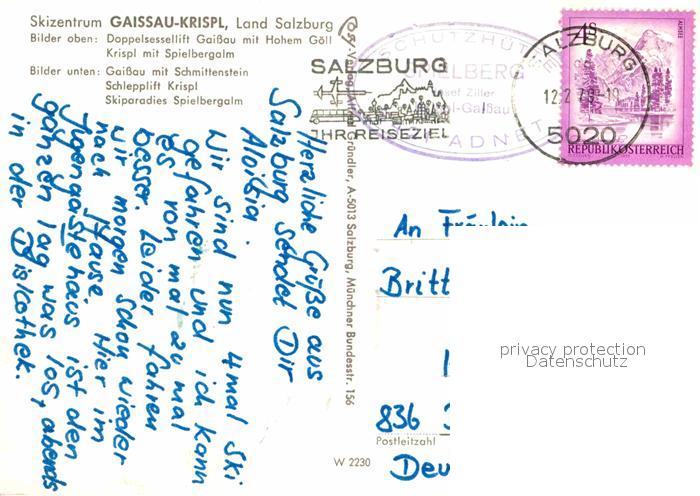 Skizentrum GAISSAU-KRISPL, Land Salzburg
Bilder oben: Doppelsessellift Gaißau mit Hohem Göll
Krispl mit Spielbergalm
Bilder unten: Gaißau mit Schmittenstein
Schlepplift Krispl
Skiparadies Spielbergalm
Herzliche Grüße aus
Salzburg sendet Dir
Wir sind nun 4mal Ski
gefahren und ich kann
es von mal zu mal
besser. Leider fahren
wir morgen schon wieder
nach Hause. Hier im
Jugendgästehaus ist den
ganzen Tag was los, abends
in der Diskothek.
Gründler, A-5013 Salzburg, Münchner Bundesstr. 156
SALZBURG
IHR REISEZIEL
SCHUTZHÜTTE
SPIELBERG
Josef Ziller
Krispl-Gaißau
ADNET
SALZBURG
5020
4S
REPUBLIK ÖSTERREICH
An Fräulein
Britt
836
Postleitzahl
Deu
W 2230
privacy protection
Datenschutz